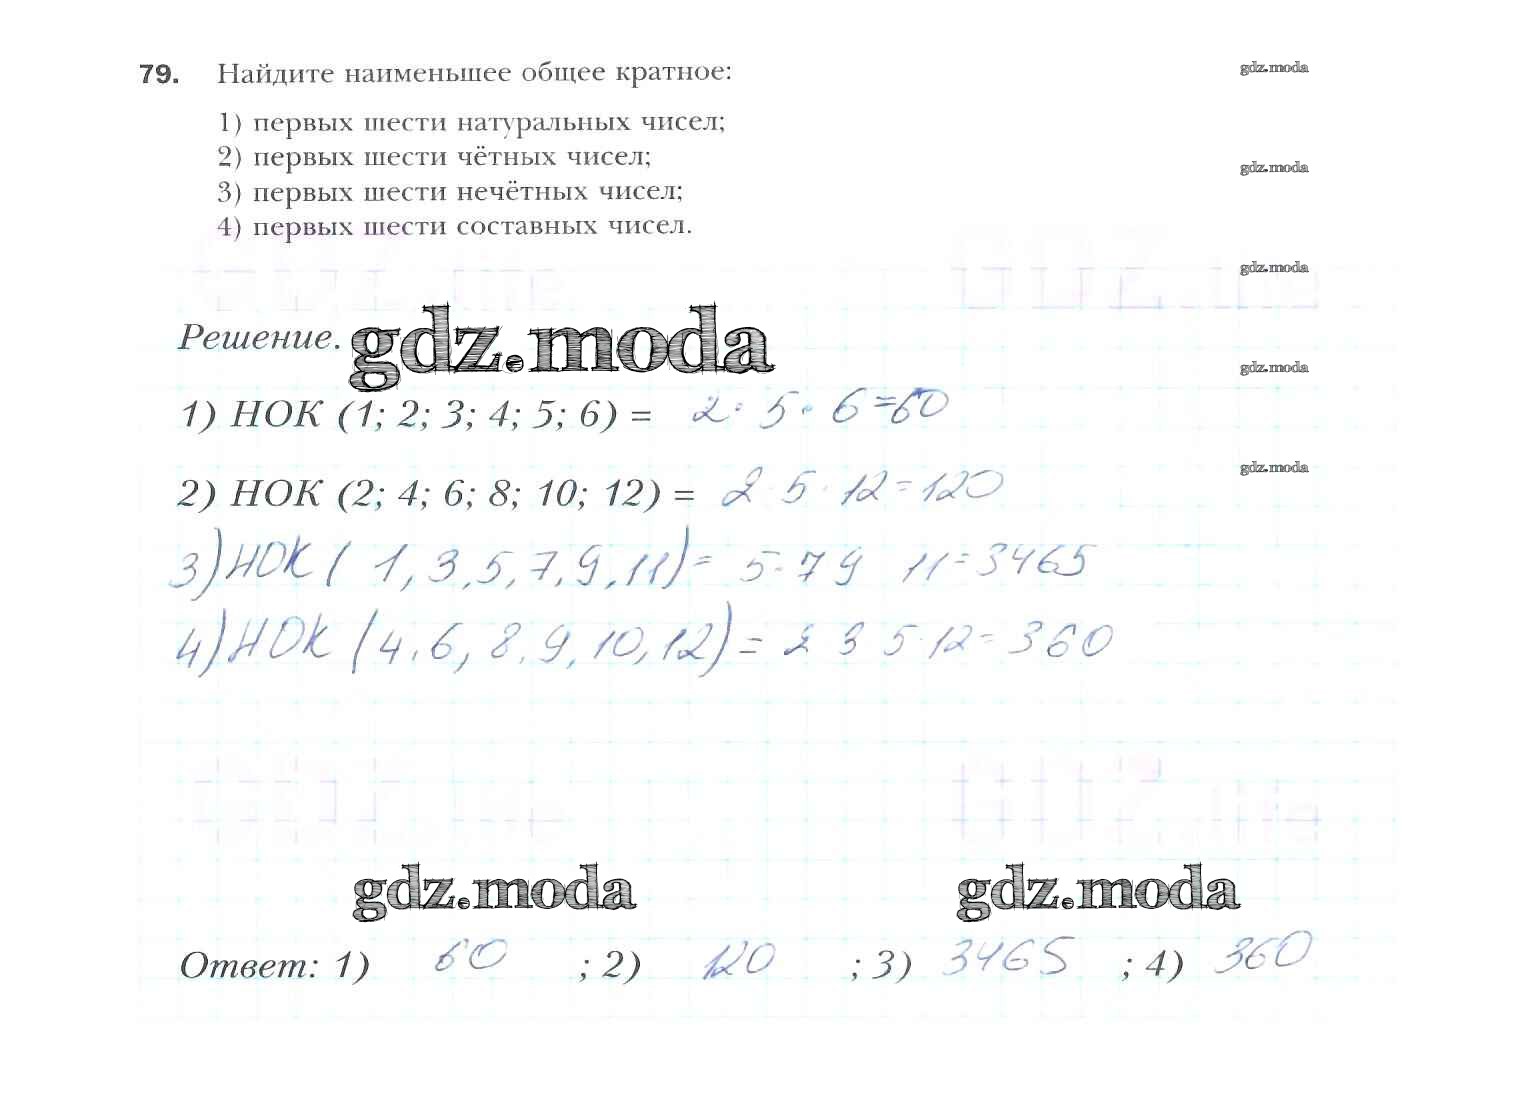 79. Найдите наименьшее общее кратное:
gdz.moda
1) первых шести натуральных чисел;
2) первых шести чётных чисел;
gdz.moda
3) первых шести нечётных чисел;
4) первых шести составных чисел.
gdz.moda
Решение. gdz.moda
gdz.moda
1) НОК (1; 2; 3; 4; 5; 6) = 2 · 5 · 6 = 60
gdz.moda
2) НОК (2; 4; 6; 8; 10; 12) = 2 · 5 · 12 = 120
3) НОК ( 1, 3, 5, 7, 9, 11) = 5 · 7 9 11 = 3465
4) НОК (4, 6, 8, 9, 10, 12) = 2 3 5 · 12 = 360
gdz.moda gdz.moda
Ответ: 1) 60 ; 2) 120 ; 3) 3465 ; 4) 360